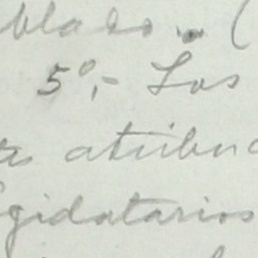 blado. (
5º,- Los
atribu
gidatarios